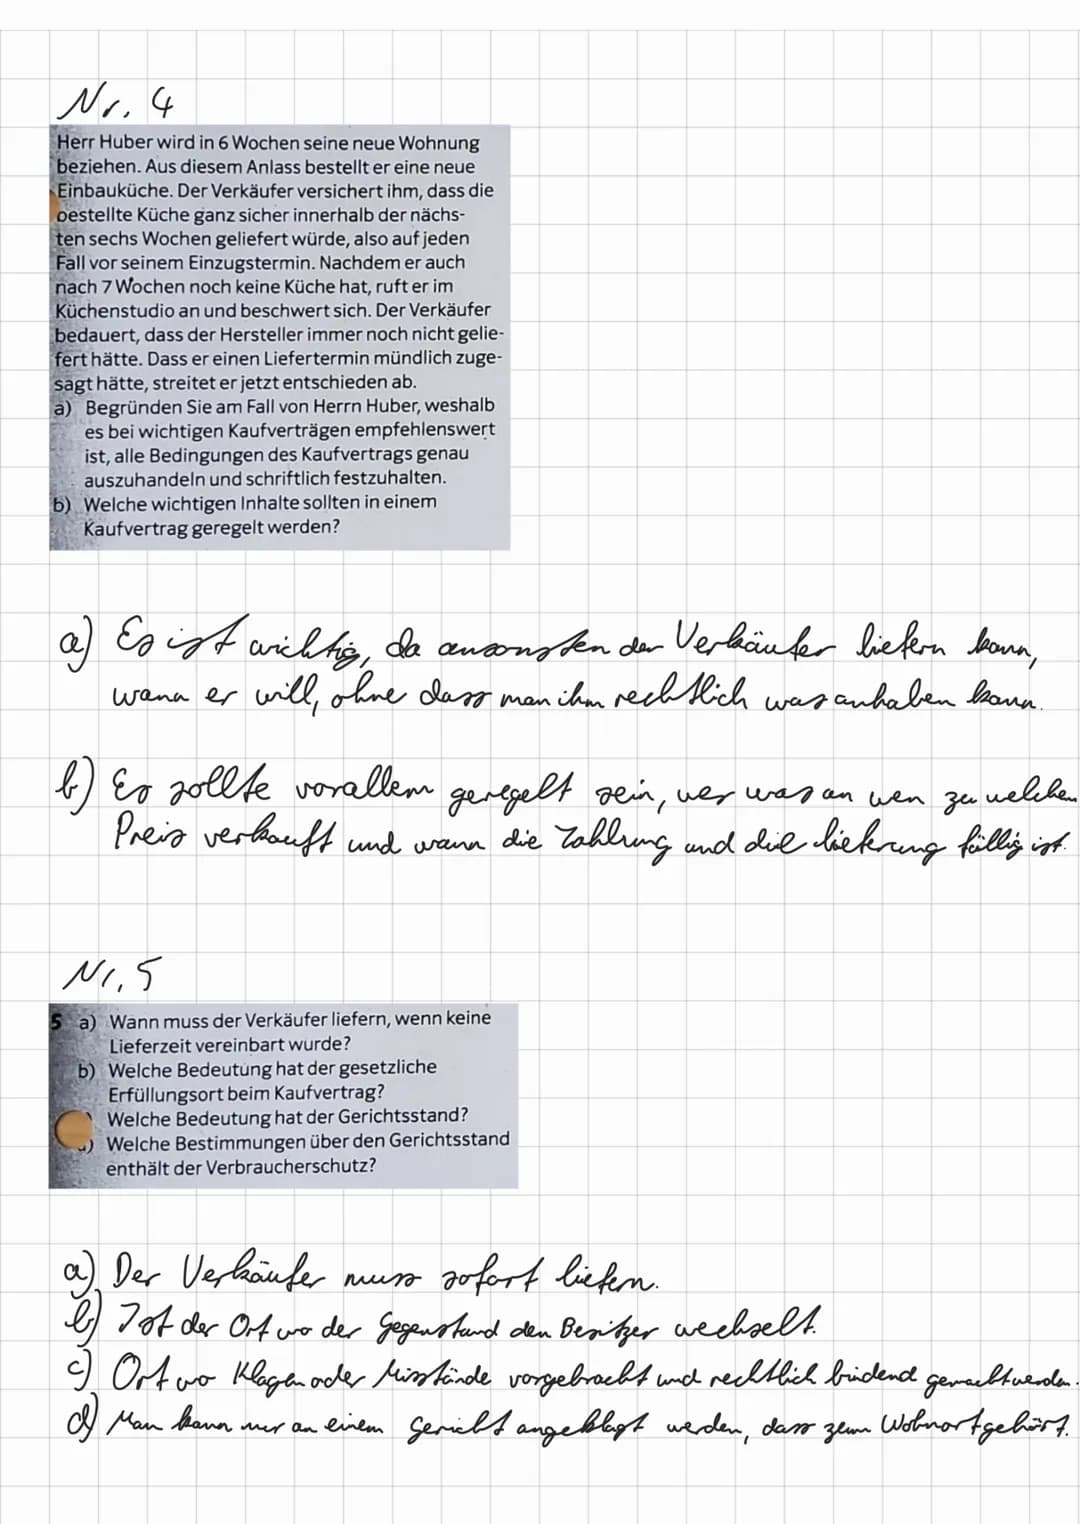 Nr. 4
Herr Huber wird in 6 Wochen seine neue Wohnung
beziehen. Aus diesem Anlass bestellt er eine neue
Einbauküche. Der Verkäufer versichert ihm, dass die
bestellte Küche ganz sicher innerhalb der nächs-
ten sechs Wochen geliefert würde, also auf jeden
Fall vor seinem Einzugstermin. Nachdem er auch
nach 7 Wochen noch keine Küche hat, ruft er im
Küchenstudio an und beschwert sich. Der Verkäufer
bedauert, dass der Hersteller immer noch nicht gelie-
fert hätte. Dass er einen Liefertermin mündlich zuge-
sagt hätte, streitet er jetzt entschieden ab.
a) Begründen Sie am Fall von Herrn Huber, weshalb
es bei wichtigen Kaufverträgen empfehlenswert
ist, alle Bedingungen des Kaufvertrags genau
auszuhandeln und schriftlich festzuhalten.
b) Welche wichtigen Inhalte sollten in einem
Kaufvertrag geregelt werden?
a) Es ist wichtig, da ansonsten der Verkäufer liefern kann,
wann er will, ohne dass man ihm rechtlich was anhaben kann.
b) Es sollte vorallem geregelt sein, wer was an wen zu welchen
Preis verkauft und wann die Zahlung und die lieferung fällig ist.
Nr. 5
5 a) Wann muss der Verkäufer liefern, wenn keine
Lieferzeit vereinbart wurde?
b) Welche Bedeutung hat der gesetzliche
Erfüllungsort beim Kaufvertrag?
Welche Bedeutung hat der Gerichtsstand?
) Welche Bestimmungen über den Gerichtsstand
enthält der Verbraucherschutz?
a) Der Verkäufer muss sofort liefern.
b) Ist der Ort wo der Gegenstand den Besitzer wechselt.
c) Ort wo Klagen oder Misstände vorgebracht und rechtlich bindend gemacht werden.
d) Man kann nur an einem Gericht angeklagt werden, dass zum Wohnort gehört.